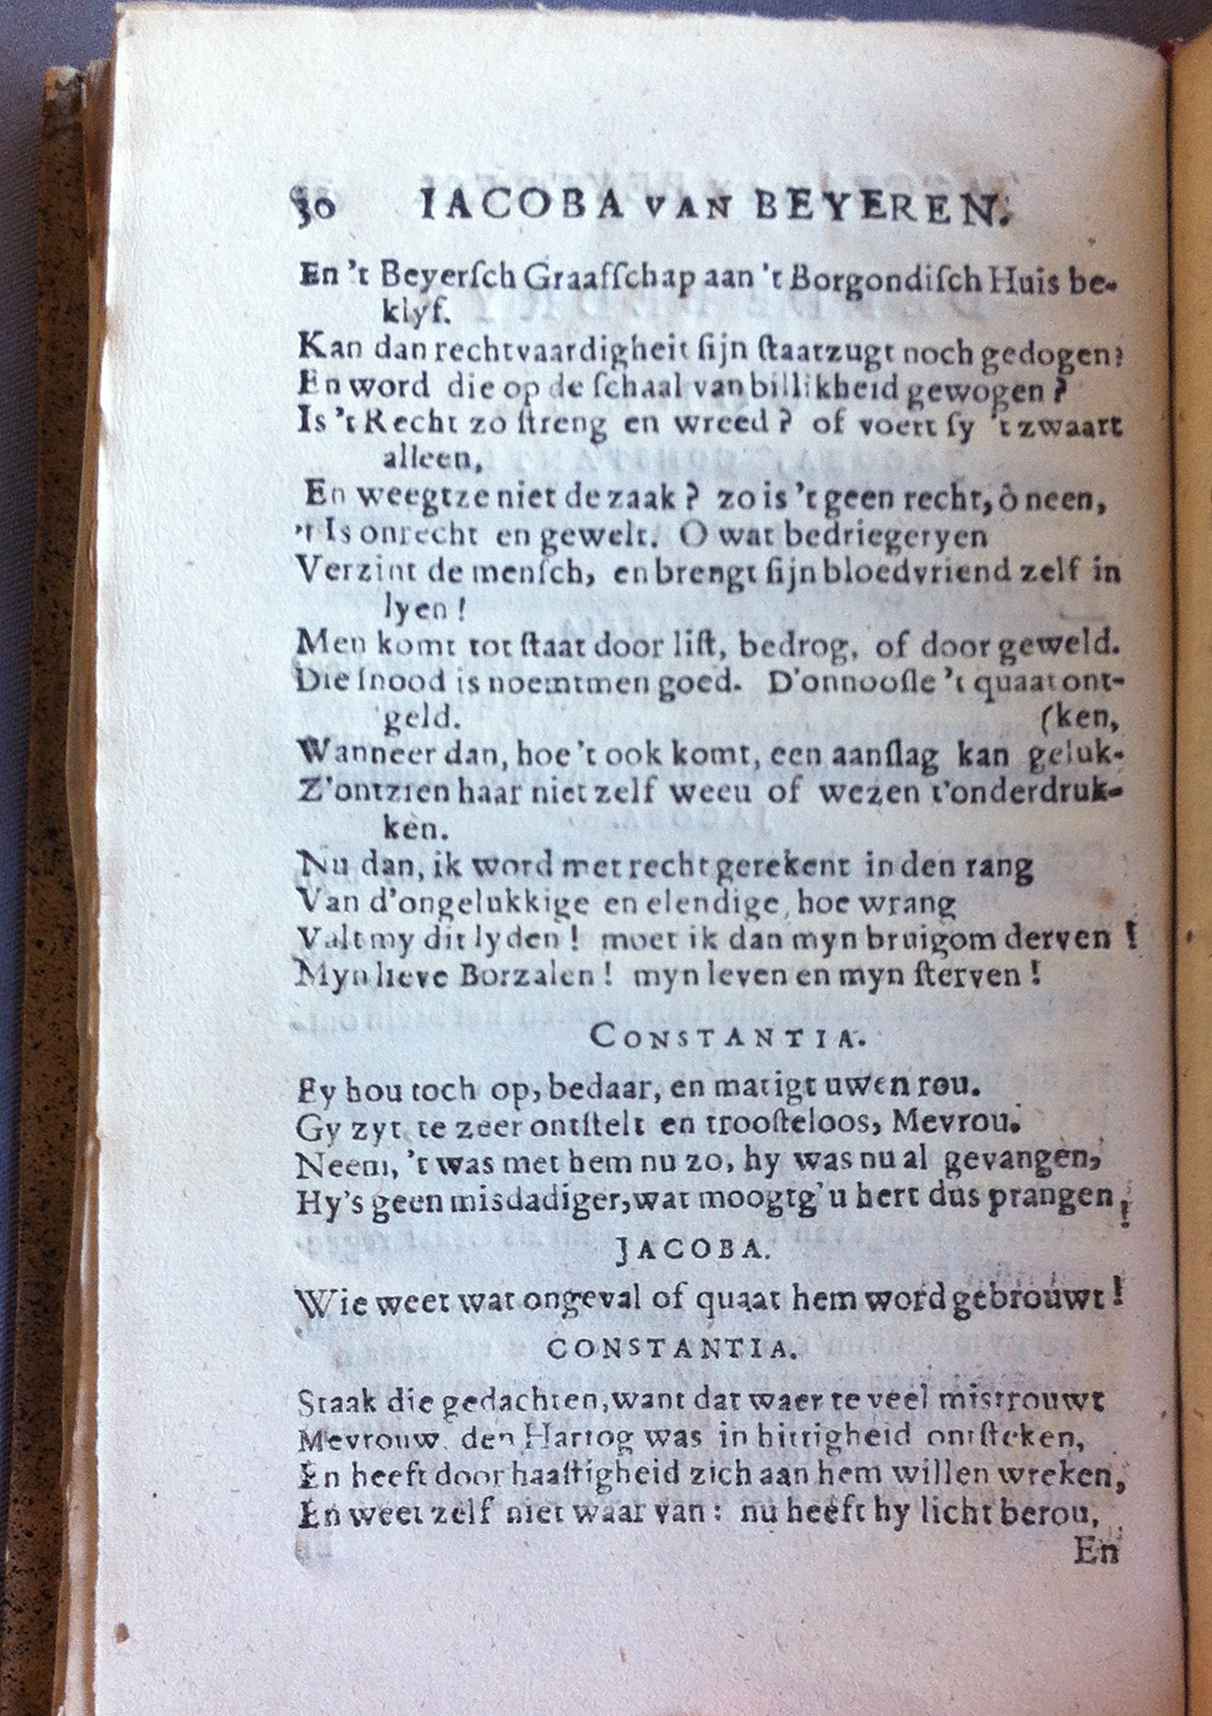 30 IACOBA VAN BEYEREN.
En 't Beyerſch Graafſchap aan 't Borgondiſch Huis be-
klyf.
Kan dan rechtvaardigheit ſijn ſtaatzugt noch gedogen?
En word die op de ſchaal van billikheid gewogen?
Is 't Recht zo ſtreng en wreed? of voert ſy 't zwaart
alleen,
En weegtze niet de zaak? zo is 't geen recht, ô neen,
't Is onrecht en gewelt. O wat bedriegeryen
Verzint de menſch, en brengt ſijn bloedvriend zelf in
lyen!
Men komt tot ſtaat door liſt, bedrog, of door geweld.
Die ſnood is noemtmen goed. D'onnooſle 't quaat ont-
geld. (ken,
Wanneer dan, hoe 't ook komt, een aanſlag kan geluk-
Z'ontzien haar niet zelf weeu of wezen t'onderdruk-
ken.
Nu dan, ik word met recht gerekent in den rang
Van d'ongelukkige en elendige, hoe wrang
Valt my dit lyden! moet ik dan myn bruigom derven!
Myn lieve Borzalen! myn leven en myn ſterven!
CONSTANTIA.
Ey hou toch op, bedaar, en matigt uwen rou.
Gy zyt te zeer ontſtelt en trooſteloos, Mevrou.
Neem, 't was met hem nu zo, hy was nu al gevangen,
Hy's geen misdadiger, wat moogtg' u hert dus prangen!
JACOBA.
Wie weet wat ongeval of quaat hem word gebrouwt!
CONSTANTIA.
Staak die gedachten, want dat waer te veel mistrouwt
Mevrouw. den Hartog was in hittigheid ontſteken,
En heeft door haaſtigheid zich aan hem willen wreken,
En weet zelf niet waar van: nu heeft hy licht berou,
En